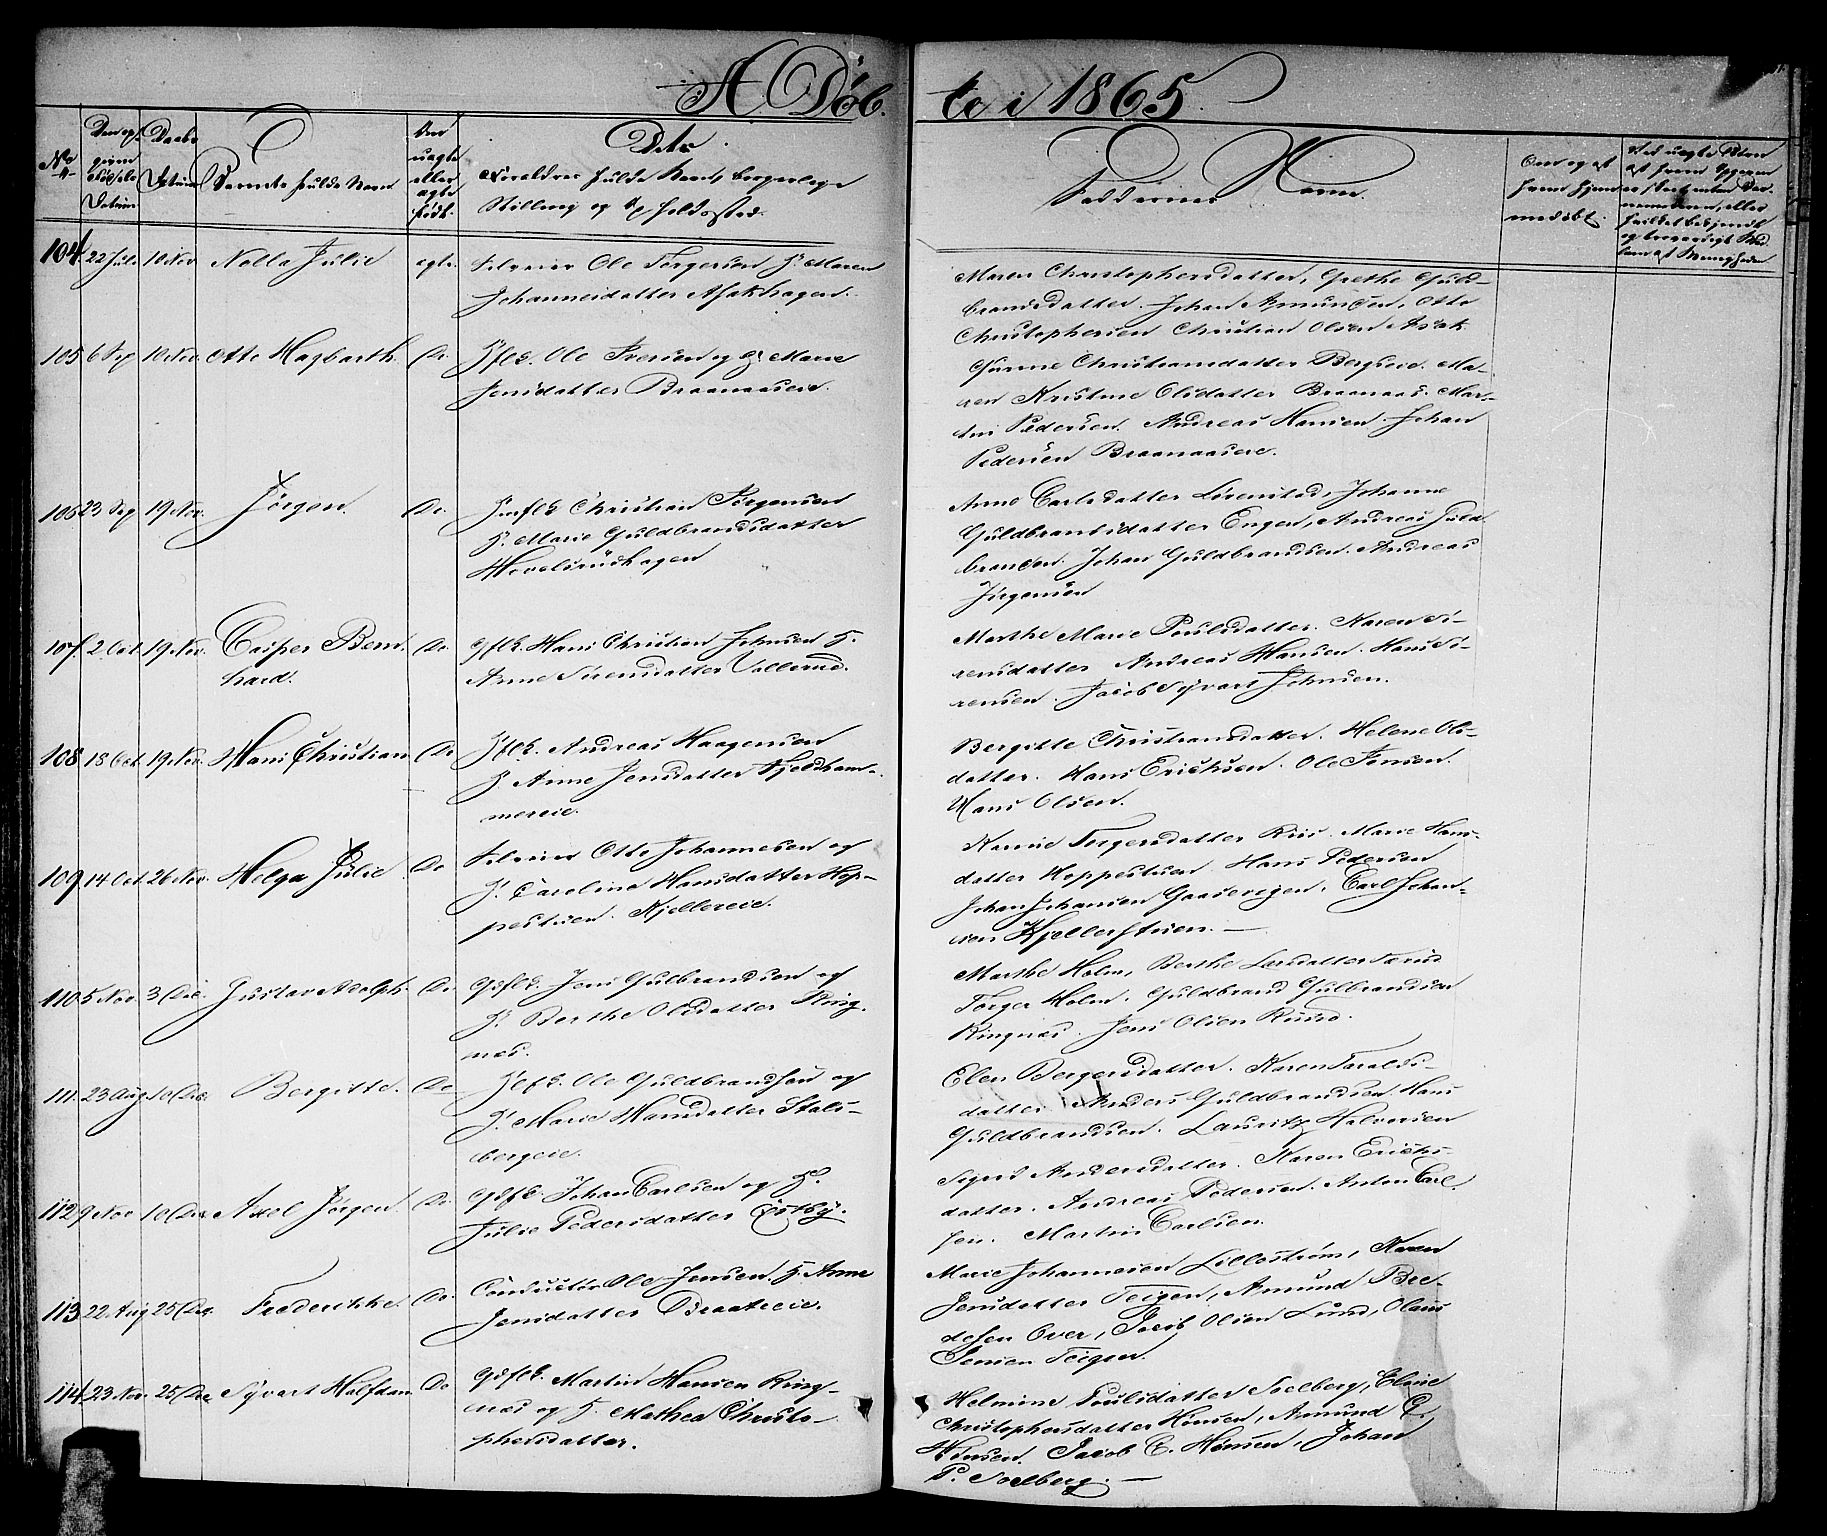 A. Døb. te i 1865.
No
Daabs
Datum
Barnets fulde Navn
Det
Faddernes Navne.
104 22 Juli 10 Nov Nella Julie egte. Selveier Ole Torgersen H. Maren
Johannesdatter Asakhagen.
Maren Christophersdatter, Grethe Guld-
brandsdatter. Johan Amundsen, Otto
Christophersen Christian Olsen Asak
105 6 Sep 10 Nov. Otto Hagbarth. Do. Ole Iversen og H. Marie
Jensdatter Braanaaseie.
Gunine Christiansdatter Bergseie. Ma-
ren Kristine Olsdatter Braanaas. Mar-
tin Pedersen. Andreas Hansen. Johan
Pedersen Braanaaseie.
106 23 Sep 19 Nov. Jørgen. Do. Christian Jørgensen
H. Marie Guldbrandsdatter
Hovelsrudhagen
Anne Carlsdatter Lövenstad, Johanne
Guldbrandsdatter Engen, Andreas Guld-
brandsen. Johan Guldbrandsen. Andreas
Jörgensen
107. 2 Oct. 19 Nov. Casper Bern- Do. Hans Christian Johnsen H.
hard. Anne Sörensdatter Vallerud.
Marthe Marie Poulsdatter. Karen Sö-
rensdatter Andreas Hansen. Hans Sö-
rensen. Jacob Syvert Johnsen.
108 18 Oct. 19 Nov. Hans Christian Do Andreas Haagensen
H. Anne Jensdatter Fjeldham-
mereie.
Bergitte Christiansdatter. Helene Ols-
datter. Hans Ericksen. Ole Jensen.
Hans Olsen.
109 14 Oct. 26 Nov. Helga Julie Do Selveier Otto Johannesen og
H. Caroline Hansdatter Hop-
pestuen. Kjellereie.
Karine Torgersdatter Riis. Marie Hans-
datter Hoppestuen Hans Pedersen
Johan Johansen Gaasevigen, Carl Johan-
sen Kjellerstuen. —
110 5 Nov. 3 Dec. Gustav Adolph. Do. Jens Gulbrandsen og
H. Berthe Olsdatter Ring-
næs.
Marthe Holm, Berthe Larsdatter
Torger Holm. Guldbrand Gulbrandsen
Ringnæs. Jens Olsen Ruud.
111. 23 Aug 10 Dec. Bergitte. Do. Ole Guldbrandsen og
H. Marie Hansdatter Stals-
bergeie.
Elen Bergersdatter. Karen Taralds-
datter. Anders Guldbrandsen. Hans
Guldbrandsen. Lauritz Halvorsen
112 9 Nov 10 Dec Axel Jörgen. Do Johan Carlsen og H.
Julie Pedersdatter Östby.
Sigrid Andersdatter. Karen Ericks-
datter. Andreas Pedersen. Anton Carl-
sen. Martin Carlsen.
113 22 Aug 25 Dec. Frederikke. Do. Conducteur Ole Jensen. H. Anne
Jensdatter Braateeie.
Marie Johannesen Lilleström, Karen
Jensdatter Teigen, Amund Bre-
desen Over, Jacob Olsen Lund, Olaus
Jensen Teigen.
114 23 Nov. 25 Dec Syvert Halfdan Do Martin Hansen Ring-
næs og H. Mathea Christo-
phersdatter.
Helmine Poulsdatter Soelberg, Elene
Christophersdatter Hönsen, Amund C.
Hönsen. Jacob C. Hönsen, Johan
P. Soelberg. —